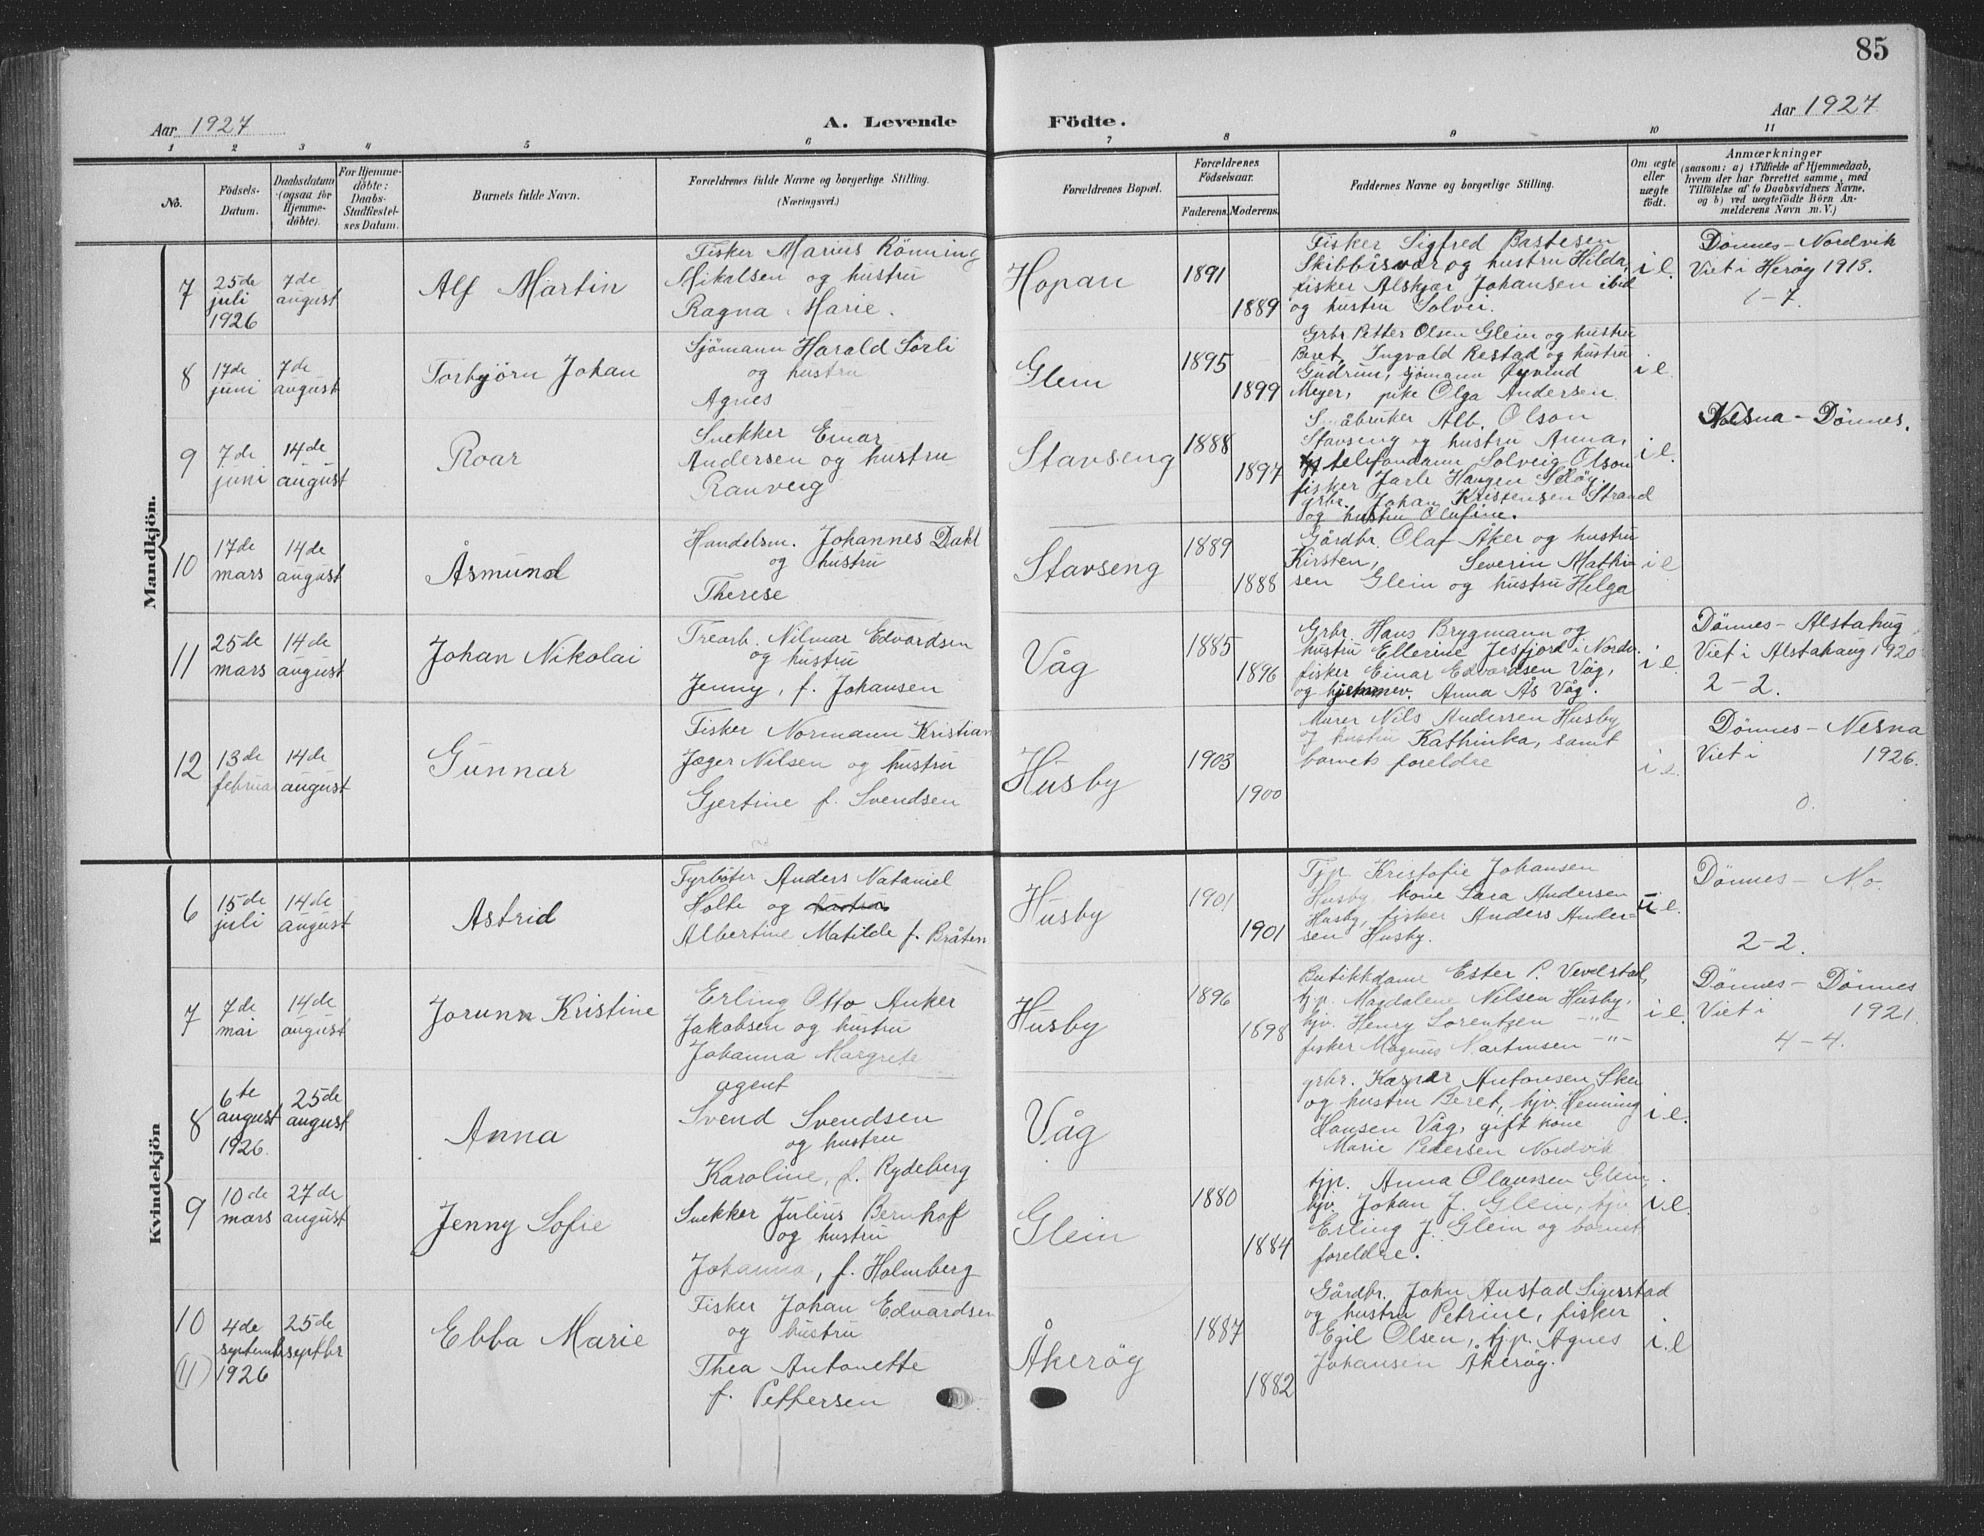 85
Aar 1927
A. Levende
Födte.
Aar 1927
1 2 3 4 5 6 7 8 9 10 11
No.
Födsels-
Datum.
Daabsdatum
(ogsaa for
Hjemme-
döbte).
For Hjemme-
döbte:
Daabs-
Stadfæstel-
ses Datum.
Barnets fulde Navn.
Forældrenes fulde Navne og borgerlige Stilling.
(Næringsvei.)
Forældrenes Bopæl.
Forældrenes
Födselsaar.
Faderens. Moderens.
Faddernes Navne og borgerlige Stilling.
Om ægte
eller
uægte
födt.
Anmærkninger
(saasom: a) i Tilfælde af Hjemmedaab,
hvem der har forrettet samme, med
Tilföielse af to Daabsvidners Navne,
og b) ved uægtefödte Börn An-
melderens Navn m. V.)
Mandkjön.
7
25de
juli
1926
7de
august
Alf Martin
Fisker Marius Rönning
Mikalsen og hustru
Ragna Marie.
Hopan
1891
1889
Fisker Sigfred Bastesen
Skibbåsvær og hustru Hilda,
fisker Alskjær Johansen ibid
og hustru Solvei.
i e.
Dönnes - Nordvik
Viet i Heröy 1913.
1-7.
8
17de
juni
7de
august
Torbjörn Johan
Sjömann Harald Sörli
og hustru
Agnes
Glein
1895
1899
Grbr Petter Olsen Glein og hustru
Beret, Ingvald Restad og hustru
Gudrun, sjömann Öyvind
Meyer, pike Olga Andersen
i e.
9
7de
juni
14de
august
Roar
Snekker Einar
Andersen og hustru
Ranveig
Stavseng
1888
1897
Småbruker Alb. Olson
Stavseng og hustru Anna,
telefondame Solveig Olson
fisker Jarle Haugen
grbr. Johan Kristensen Strand
og hustru Olufine.
i e.
Nesna - Dönnes.
10
17de
mars
14de
august
Åsmund
Handelsm. Johannes Dahl
og hustru
Therese
Stavseng
1889
1888
Gårdbr. Olaf Åker og hustru
Kirsten, Severin Mathi-
sen Glein og hustru Helga
i e
11
25de
mars
14de
august
Johan Nikolai
Trearb. Nilmar Edvardsen
og hustru
Jenny, f. Johansen
Våg
1885
1896
Grbr. Hans Brygmann og
hustru Ellerine Jesfjord i Nordv.
fisker Einar Edvardsen Våg,
og hjemmev. Anna Ås Våg.
i e
Dönnes - Alstahug
Viet i Alstahaug 1920
2-2.
12
13de
februa
14de
august
Gunnar
Fisker Normann Kristian
Jæger Nilsen og hustru
Gjertine f. Svendsen
Husby
1903
1900
Murer Nils Andersen Husby
og hustru Kathinka, samt
barnets foreldre
i e.
Dönnes - Nesna
Viet i 1926.
0.
Kvindekjön
6
15de
juli
14de
august
Astrid
Fyrböter Anders Nataniel
Holte og hustru
Albertine Matilde f. Bråten
Husby
1901
1901
Tjp. Kristofie Johansen
Husby, kone Sara Andersen
Husby, fisker Anders Ander-
sen Husby.
i e.
Dönnes - No.
2-2.
7
7de
mai
14de
august
Jorunn Kristine
Erling Otto Anker
Jakobsen og hustru
Johanna Margrete
Husby
1896
1898
Butikkdame Ester P. Vevelstad,
tjp. Magdalene Nilsen Husby,
hjv. Henry Lorentzen -"-
fisker Magnus Martinsen -"-
i e.
Dönnes - Dönnes
Viet i 1921.
4-4.
8
6te
august
1926.
25de
august
Anna
agent
Svend Svendsen
og hustru
Karoline, f. Rydeberg
Våg
grbr. Kaspar Antonsen Skei
og hustru Beret, hjv. Henning
Hansen Våg, gift kone
Marie Pedersen Nordvik
i e.
9
10de
mars
27de
august
Jenny Sofie
Snekker Julius Bernhof
og hustru
Johanna, f. Holmberg
Glein
1880
1884
tjp. Anna Olaussen Glein,
hjv. Johan J. Glein, hjv
Erling J. Glein og barnets
foreldre.
i e.
10
(11)
4de
septembr
1926
25de
septbr
Ebba Marie
Fisker Johan Edvardsen
og hustru
Thea Antonette
f. Pettersen
Åkeröy
1887
1882
Gårdbr. John Austad Sigerstad
og hustru Petrine, fisker
Egil Olsen, tjp. Agnes
Johansen Åkeröy.
i. e